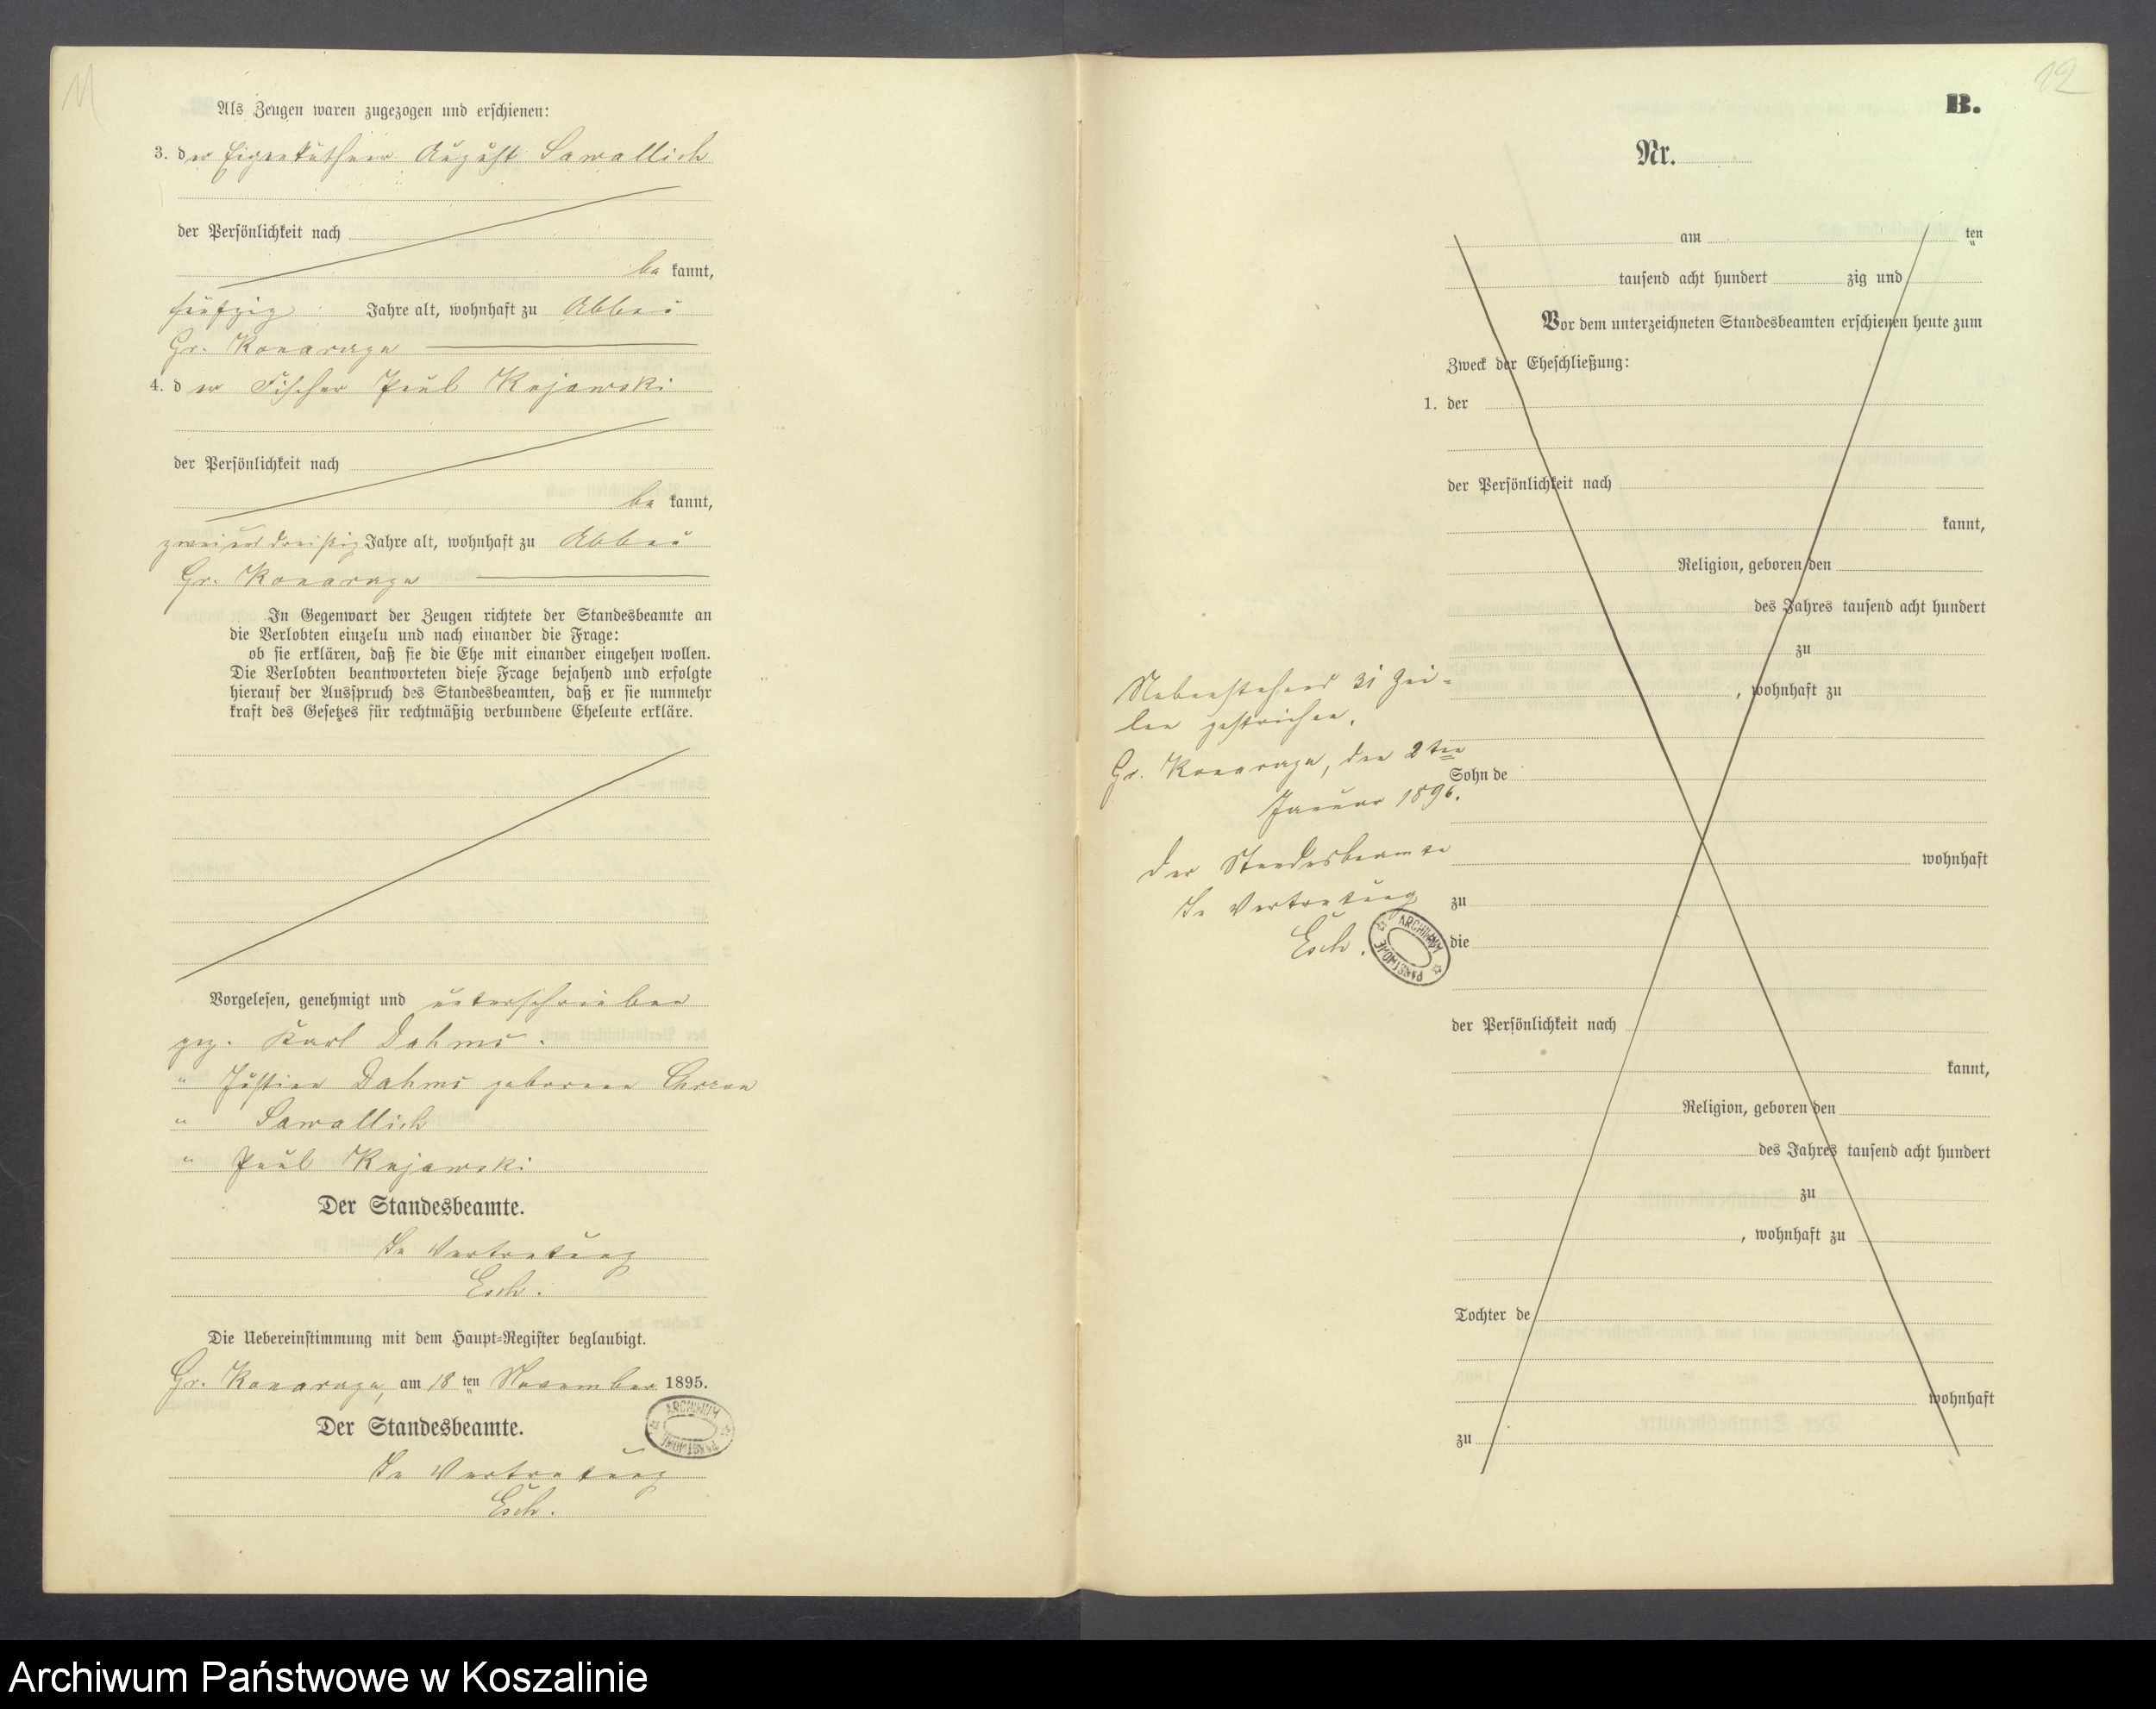 11
Als Zeugen waren zugezogen und erschienen:
3. der Eigenkäthner August Sawallich
der Persönlichkeit nach
bekannt,
fünfzig Jahre alt, wohnhaft zu Abbau
Gr. Konarzyn
4. der Fischer Paul Kujawski
der Persönlichkeit nach
bekannt,
zweiunddreißig Jahre alt, wohnhaft zu Abbau
Gr. Konarzyn
In Gegenwart der Zeugen richtete der Standesbeamte an
die Verlobten einzeln und nach einander die Frage:
ob sie erklären, daß sie die Ehe mit einander eingehen wollen.
Die Verlobten beantworteten diese Frage bejahend und erfolgte
hierauf der Ausspruch des Standesbeamten, daß er sie nunmehr
kraft des Gesetzes für rechtmäßig verbundene Eheleute erkläre.
Vorgelesen, genehmigt und unterschrieben
gez. Karl Dahms.
" Justine Dahms geborene
" Sawallich
" Paul Kujawski
Der Standesbeamte.
In Vertretung
Esch.
Die Uebereinstimmung mit dem Haupt-Register beglaubigt.
Gr. Konarzyn, am 18ten November 1895.
Der Standesbeamte.
In Vertretung
Esch.
ARCHIWUM PAŃSTWOWE
12
B.
Nr.
am ten
tausend acht hundert zig und
Vor dem unterzeichneten Standesbeamten erschienen heute zum
Zweck der Eheschließung:
1. der
der Persönlichkeit nach
kannt,
Religion, geboren den
des Jahres tausend acht hundert
zu
, wohnhaft zu
Sohn de
wohnhaft
zu
die
der Persönlichkeit nach
kannt,
Religion, geboren den
des Jahres tausend acht hundert
zu
, wohnhaft zu
Tochter de
wohnhaft
zu
Nebenstehend 31 Zei-
len gestrichen.
Gr. Konarzyn, den 2ten
Januar 1896.
Der Standesbeamte
In Vertretung
Esch.
ARCHIWUM PAŃSTWOWE
Archiwum Państwowe w Koszalinie